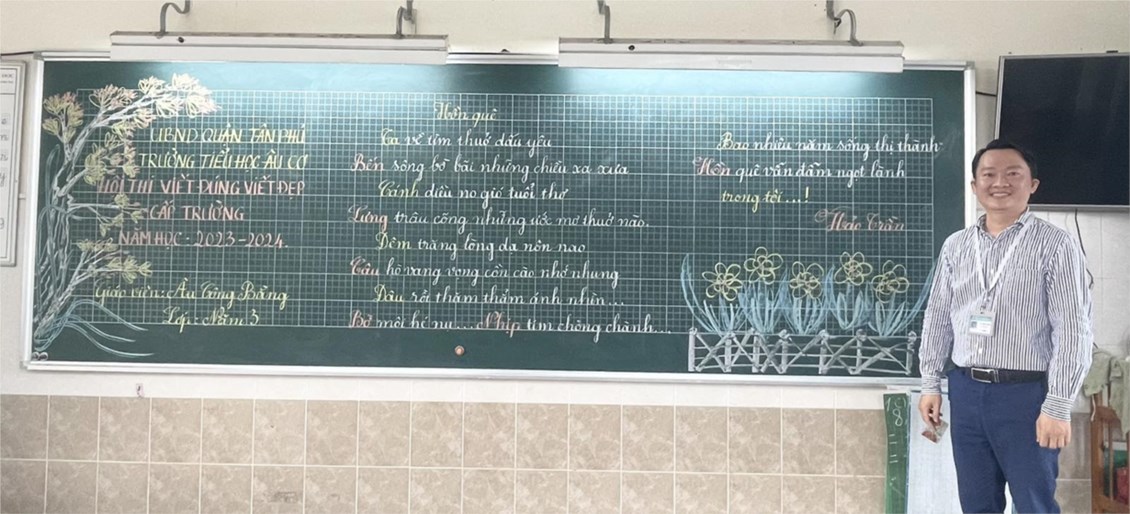 UBND QUẬN TÂN PHÚ
TRƯỜNG TIỂU HỌC ÂU CƠ
HỘI THI VIẾT ĐÚNG VIẾT ĐẸP
CẤP TRƯỜNG
NĂM HỌC: 2023-2024.
Giáo viên: Âu Công Bằng
Lớp: Năm 3
Hồn quê
Ta về tìm thuở dấu yêu
Bến sông bờ bãi những chiều xa xưa
Cánh diều no gió tuổi thơ
Lưng trâu cõng những ước mơ thuở nào.
Đêm trăng lòng dạ nôn nao
Câu hò vang vọng cồn cào nhớ nhung
Dâu rồi thăm thẳm ánh nhìn...
Bờ môi hé nụ... Nhịp tim chòng chành...
Bao nhiêu năm sống thị thành
Hồn quê vẫn đẫm ngọt lành
trong tôi...!
Hảo Trần